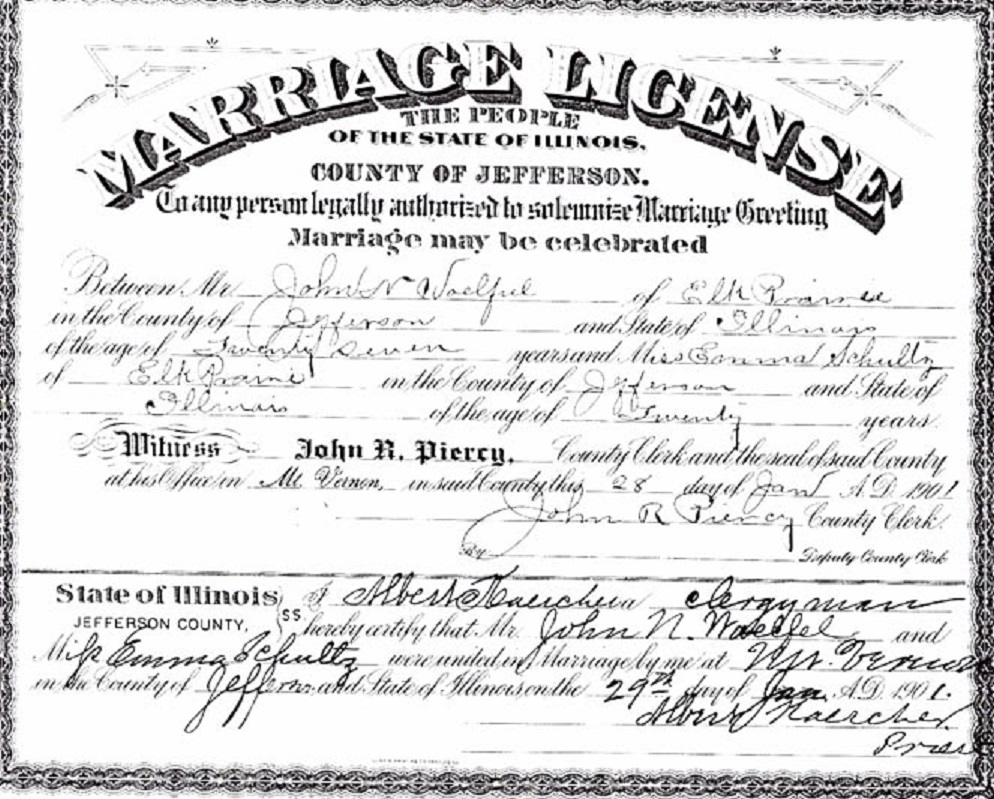 MARRIAGE LICENSE
THE PEOPLE
OF THE STATE OF ILLINOIS.
COUNTY OF JEFFERSON.
To any person legally authorized to solemnize Marriage Greeting
Marriage may be celebrated
Between Mr. John N Woelfel of Elk Prairie
in the County of Jefferson and State of Illinois
of the age of Twenty seven years and Miss Emma Schultz
of Elk Prairie in the County of Jefferson and State of
Illinois of the age of Twenty years.
Witness John R. Piercy, County Clerk and the seal of said County
at his Office in Mt. Vernon, in said County this 28 day of Jan A.D. 1901
John R Piercy County Clerk.
By Deputy County Clerk
State of Illinois } SS I Albert Kaercher a clergyman
JEFFERSON COUNTY, hereby certify that Mr. John N. Woelfel and
Miss Emma Schultz were united in Marriage by me at Mt. Vernon
in the County of Jefferson and State of Illinois on the 29th day of Jan. A.D. 1901.
Albert Kaercher